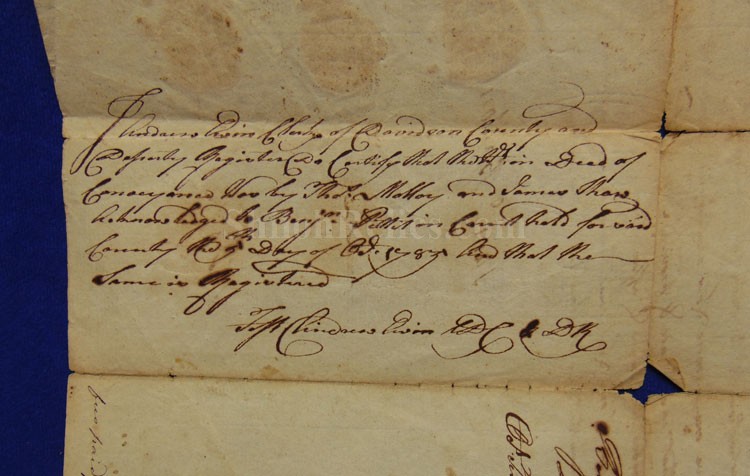 I Andrew Ewin Clerk of Davidson County and
Deputy Register Do Certify that the within Dead of
Conveyance was by Thos. Molloy and James Shaw
Acknowledged to Benjn. Pettit in Court held for said
County the 5th Day of Oct. 1785 And that the
Same is Registered
Test Andrew Ewin CDC & DR